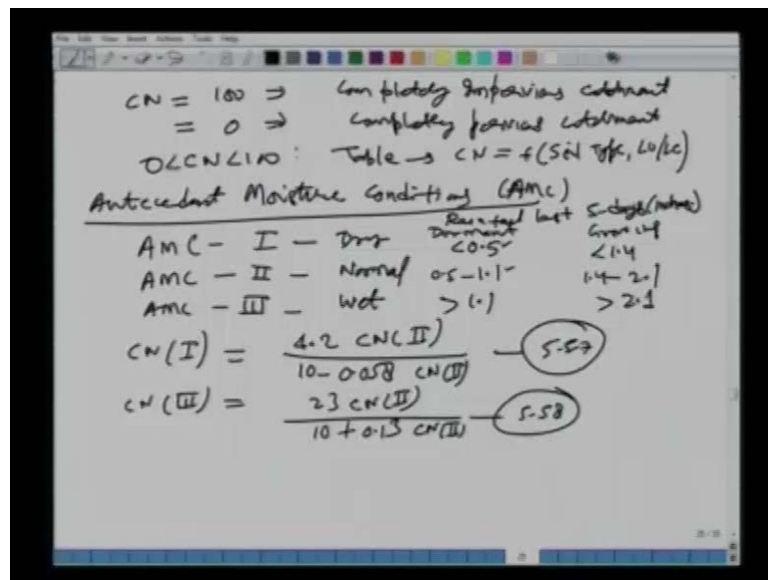 CN = 100 ⇒ Completely Impervious catchment
= 0 ⇒ Completely pervious catchment
0<CN<100: Table → CN = f(Soil Type, LU/LC)
Antecedent Moisture Conditions (AMC)
Rainfall last 5-days (inches)
Dormant Growing
AMC - I - Dry <0.5 <1.4
AMC - II - Normal 0.5-1.1 1.4-2.1
AMC - III - Wet >1.1 >2.1
CN(I) = 4.2 CN(II) / 10-0.058 CN(II) - 5.57
CN(III) = 23 CN(II) / 10+0.13 CN(II) - 5.58